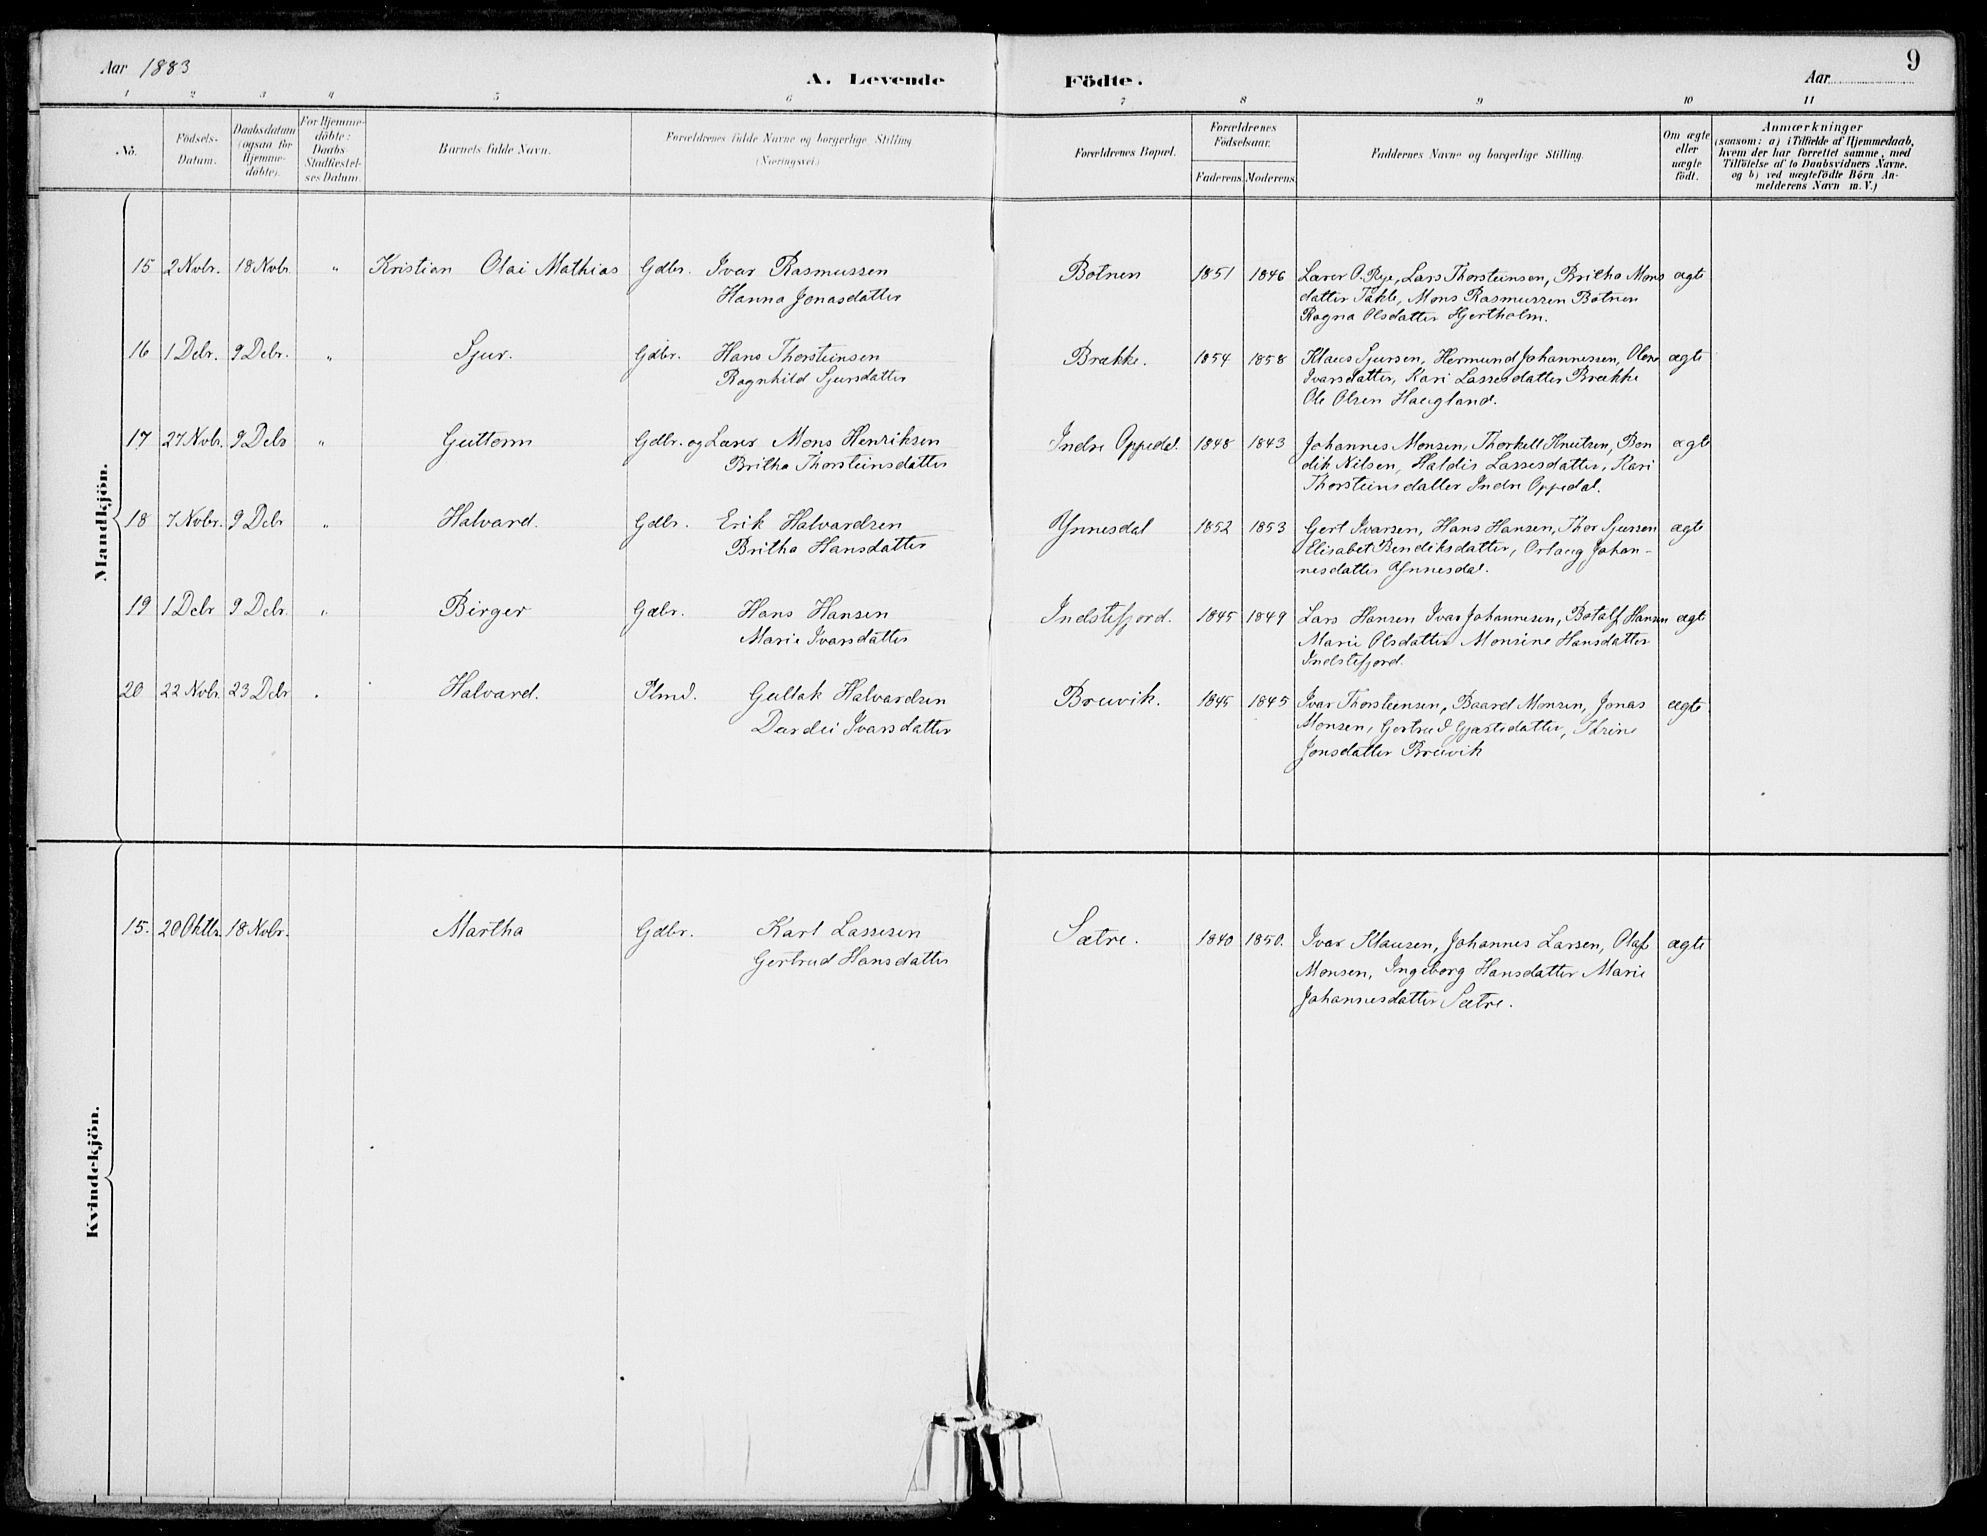 Aar 1883
A. Levende Födte.
Aar
9
1 2 3 4 5 6 7 8 9 10 11
No.
Födsels-Datum.
Daabsdatum (ogsaa for Hjemme-döbte).
For Hjemme-döbte: Daabs-Stadfæstel-ses Datum.
Barnets fulde Navn.
Forældrenes fulde Navne og borgerlige Stilling (Næringsvei.)
Forældrenes Bopæl.
Forældrenes Födselsaar.
Faderens. Moderens.
Faddernes Navne og borgerlige Stilling.
Om ægte eller uægte födt.
Anmærkninger
(saasom: a) i Tilfælde af Hjemmedaab, hvem der har forrettet samme, med Tilföielse af to Daabsvidners Navne. og b) ved uægtefödte Börn An-melderens Navn m.V.)
Mandkjön.
15 2 Nvbr. 18 Nvbr. " Kristian Olai Mathias Gdbr. Ivar Rasmussen Botnen 1851 1846 Lærer O. Rye, Lars Thorsteinsen, Britha Mons ægte
Hanna Jonasdatter datter Takle, Mons Rasmussen Botnen
Ragna Olsdatter Hjertholm.
16 1 Debr. 9 Debr. " Sjur. Gdbr. Hans Thorsteinsen Brække. 1854 1858 Klaus Sjursen, Hermund Johannessen, Olene ægte
Ragnhild Sjursdatter Ivarsdatter, Kari Lassesdatter Brække
Ole Olsen Haugland.
17 27 Nvbr. 9 Debr " Guttorm Gdbr. og Lærer Mons Henriksen Indre Oppedal. 1848 1843 Johannes Monsen, Thorkell Knutsen, Ben ægte
Britha Thorsteinsdatter dik Nilsen, Haldis Lassesdatter, Kari
Thorsteinsdatter Indre Oppedal.
18 7 Nvbr. 9 Debr " Halvard. Gdbr. Erik Halvardsen Ynnesdal 1852 1853 Gert Ivarsen, Hans Hansen, Thor Sjursen ægte
Britha Hansdatter Elisabet Bendiksdatter, Orlaug Johan-
nesdatter Ynnesdal.
19 1 Debr 9 Debr. " Birger Gdbr. Hans Hansen Indstefjord. 1845 1849 Lars Hansen Ivar Johannesen, Botolf Hansen ægte
Marie Ivarsdatter Marie Olsdatter Monsine Hansdatter
Indstefjord.
20 22 Nvbr. 23 Debr Halvard. Plmd. Gullak Halvardsen Breivik. 1845 1845 Ivar Thorsteinsen, Baard Monsen, Jonas ægte
Dardei Ivarsdatter Monsen, Gertrud Gjestsdatter, Thrine
Jonsdatter Breivik
Kvindekjön.
15. 20 Oktbr. 18 Nvbr. Martha Gdbr. Karl Lassesen Sætre. 1840 1850. Ivar Klausen, Johannes Larsen, Olaf ægte
Gertrud Hansdatter Monsen, Ingeborg Hansdatter Marie
Johannesdatter Sætre.